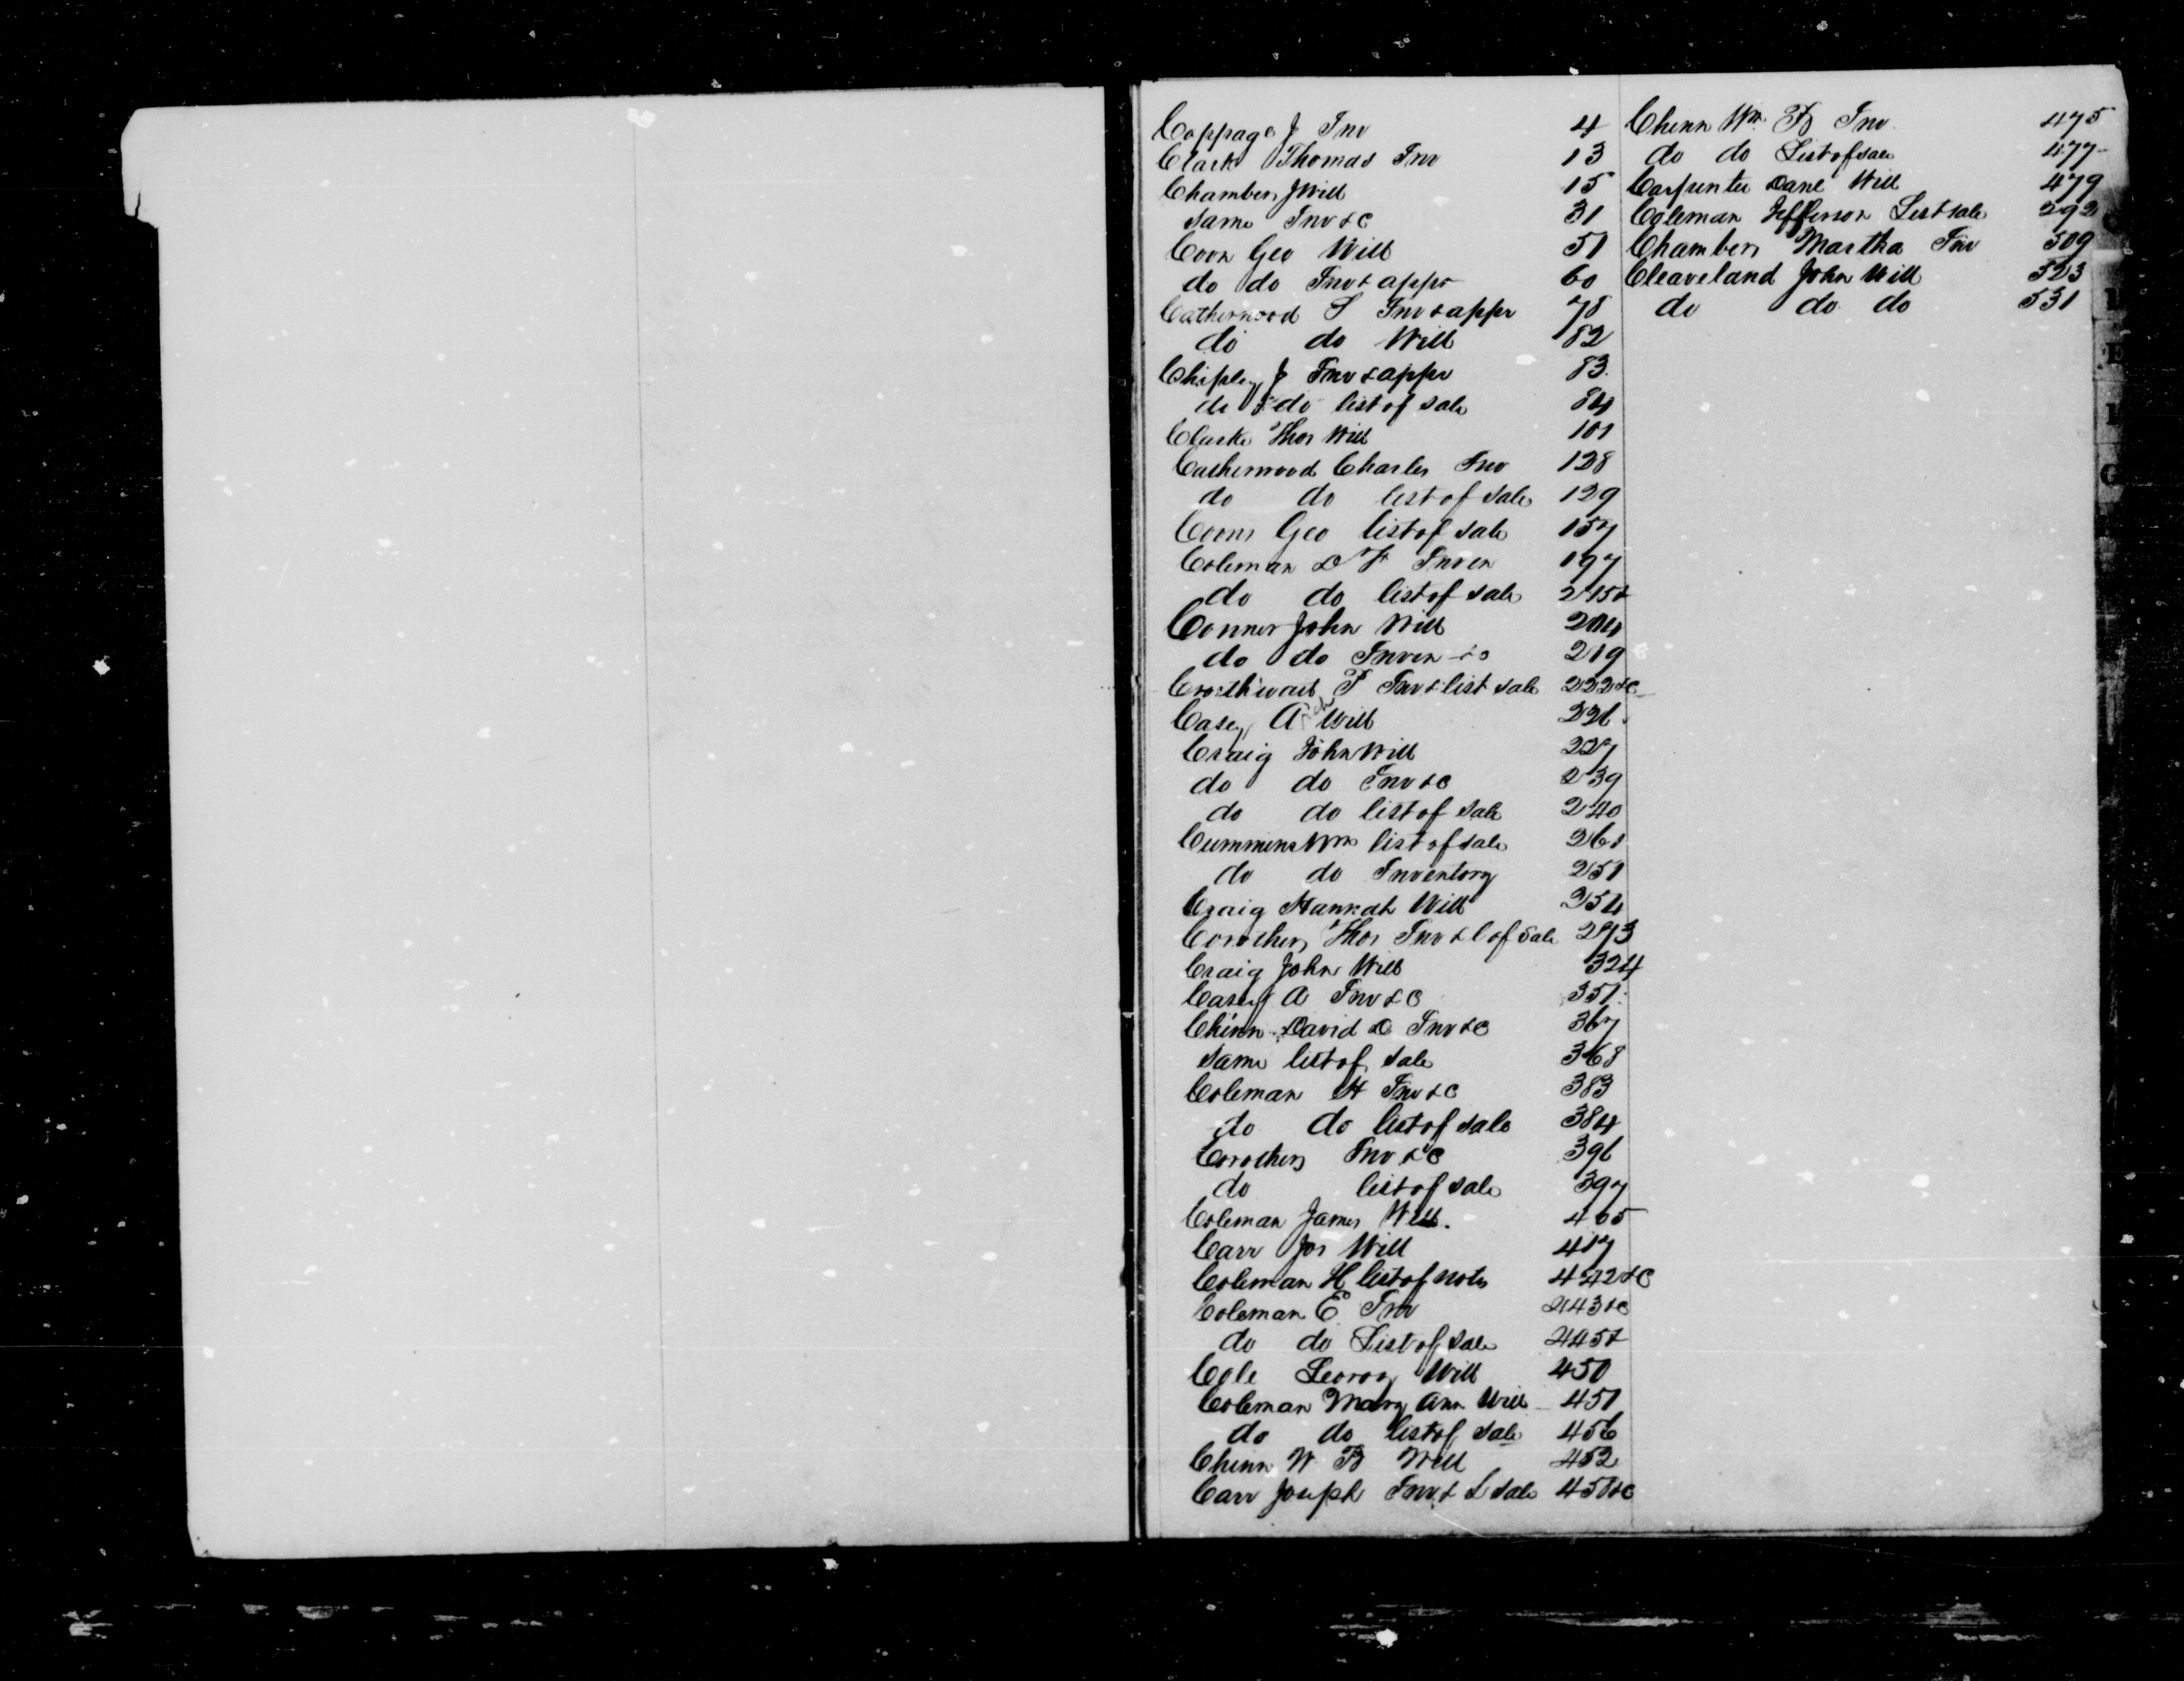 Coppage J Inv 4
Clark Thomas Inv 13
Chambers J Will 15
same Inv &c 31
Coon Geo Will 51
do do Inv & appr 60
Catherwood S Inv & appr 78
do do Will 82
Chipley J Inv & appr 83
do do list of sale 84
Clarke Thos Will 101
Catherwood Charles Inv 128
do do list of sale 129
Coons Geo list of sale 157
Coleman D F Inven 197
do do list of sale 215&
Conner John Will 204
do do Inven &c 219
T Inv & list sale 222&c
Casey A Will 226
Craig John Will 227
do do Inv &c 239
do do list of sale 240
Cummins Wm list of sale 261
do do Inventory 251
Craig Hannah Will 254
Corothers Thos Inv & l of Sale 293
Craig John Will 324
Casey A Inv & C 351
Chinn David D Inv &c 367
same list of sale 368
Coleman H Inv &c 383
do do list of sale 384
Corothers Inv &c 396
do list of sale 397
Coleman James Will. 405
Carr Jos Will 417
Coleman H list of notes 442&c
Coleman E Inv 443&c
do do List of sale 445&
Cole Leroy Will 450
Coleman Mary Ann Will 451
do do list of sale 456
Chinn W B Will 452
Carr Joseph Inv & L sale 458&c
Chinn Wm B Inv 475
do do List of sale 477
Carpenter Danl Will 479
Coleman Jefferson List sale 292
Chambers Martha Inv 509
Cleaveland John Will 523
do do do 531